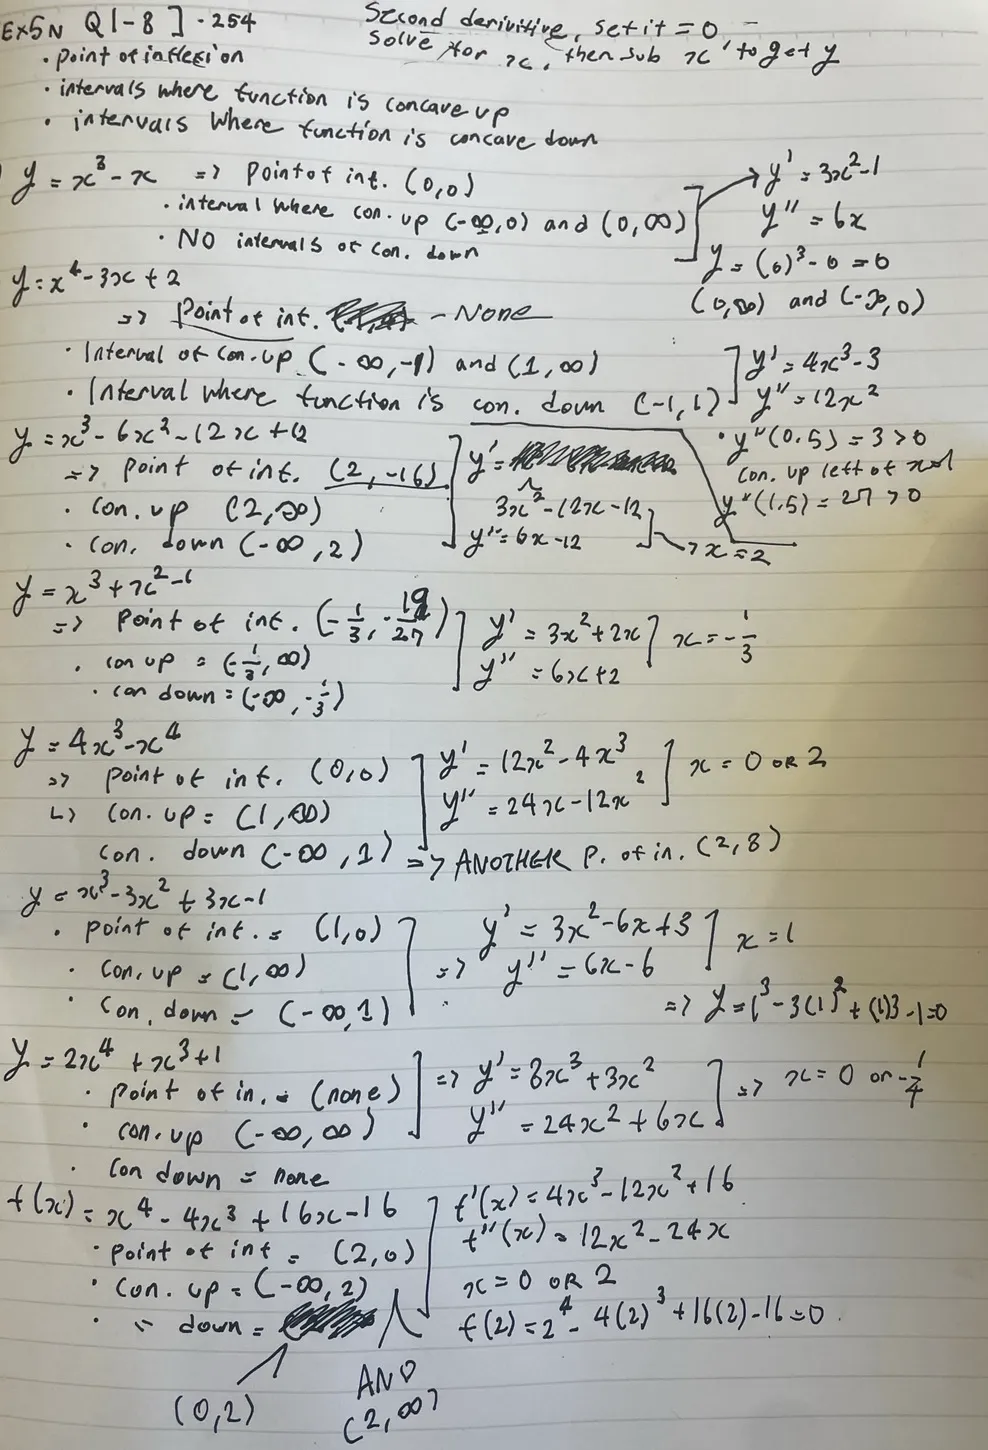 Ex5N Q1-8] . 254
Second derivitive, set it = 0
solve for x, then sub x, to get y
• point of inflexion
• intervals where function is concave up
• intervals where function is concave down
y = x³ - x => point of inf. (0,0)
• interval where con. up (-∞,0) and (0,∞)
• NO intervals of con. down
y' = 3x²-1
y'' = 6x
y = (0)³ - 0 = 0
(0,∞) and (-∞,0)
y = x⁴ - 3x + 2
=> point of inf. - None
• Interval of con. up (-∞,-1) and (1,∞)
• Interval where function is con. down (-1,1)
y' = 4x³ - 3
y'' = 12x²
• y''(0.5) = 3 > 0
con. up left of x=1
y''(1.5) = 27 > 0
y = x³ - 6x² - 12x + 12
=> point of inf. (2,-16)
• con. up (2,∞)
• con. down (-∞,2)
y' =
3x² - 12x - 12
y'' = 6x - 12
-> x = 2
y = x³ + x² - 1
=> point of inf. (-1/3, -19/27)
• con up = (-1/3, ∞)
• con down = (-∞, -1/3)
y' = 3x² + 2x
y'' = 6x + 2
x = -1/3
y = 4x³ - x⁴
=> point of inf. (0,0)
↳ con. up = (1,∞)
con. down (-∞,1) => ANOTHER P. of in. (2,8)
y' = 12x² - 4x³
y'' = 24x - 12x²
x = 0 OR 2
y = x³ - 3x² + 3x - 1
• point of inf. = (1,0)
• con. up = (1,∞)
• con. down = (-∞,1)
=> y' = 3x² - 6x + 3
y'' = 6x - 6
x = 1
=> y = 1³ - 3(1)² + (1)3 - 1 = 0
y = 2x⁴ + x³ + 1
• point of in. = (none)
• con. up (-∞,∞)
• con down = none
=> y' = 8x³ + 3x²
y'' = 24x² + 6x
=> x = 0 or -1/4
f(x) = x⁴ - 4x³ + 16x - 16
• point of inf = (2,0)
• con. up = (-∞,2)
• " down =
(0,2)
AND
(2,∞)
f'(x) = 4x³ - 12x² + 16
f''(x) = 12x² - 24x
x = 0 OR 2
f(2) = 2⁴ - 4(2)³ + 16(2) - 16 = 0